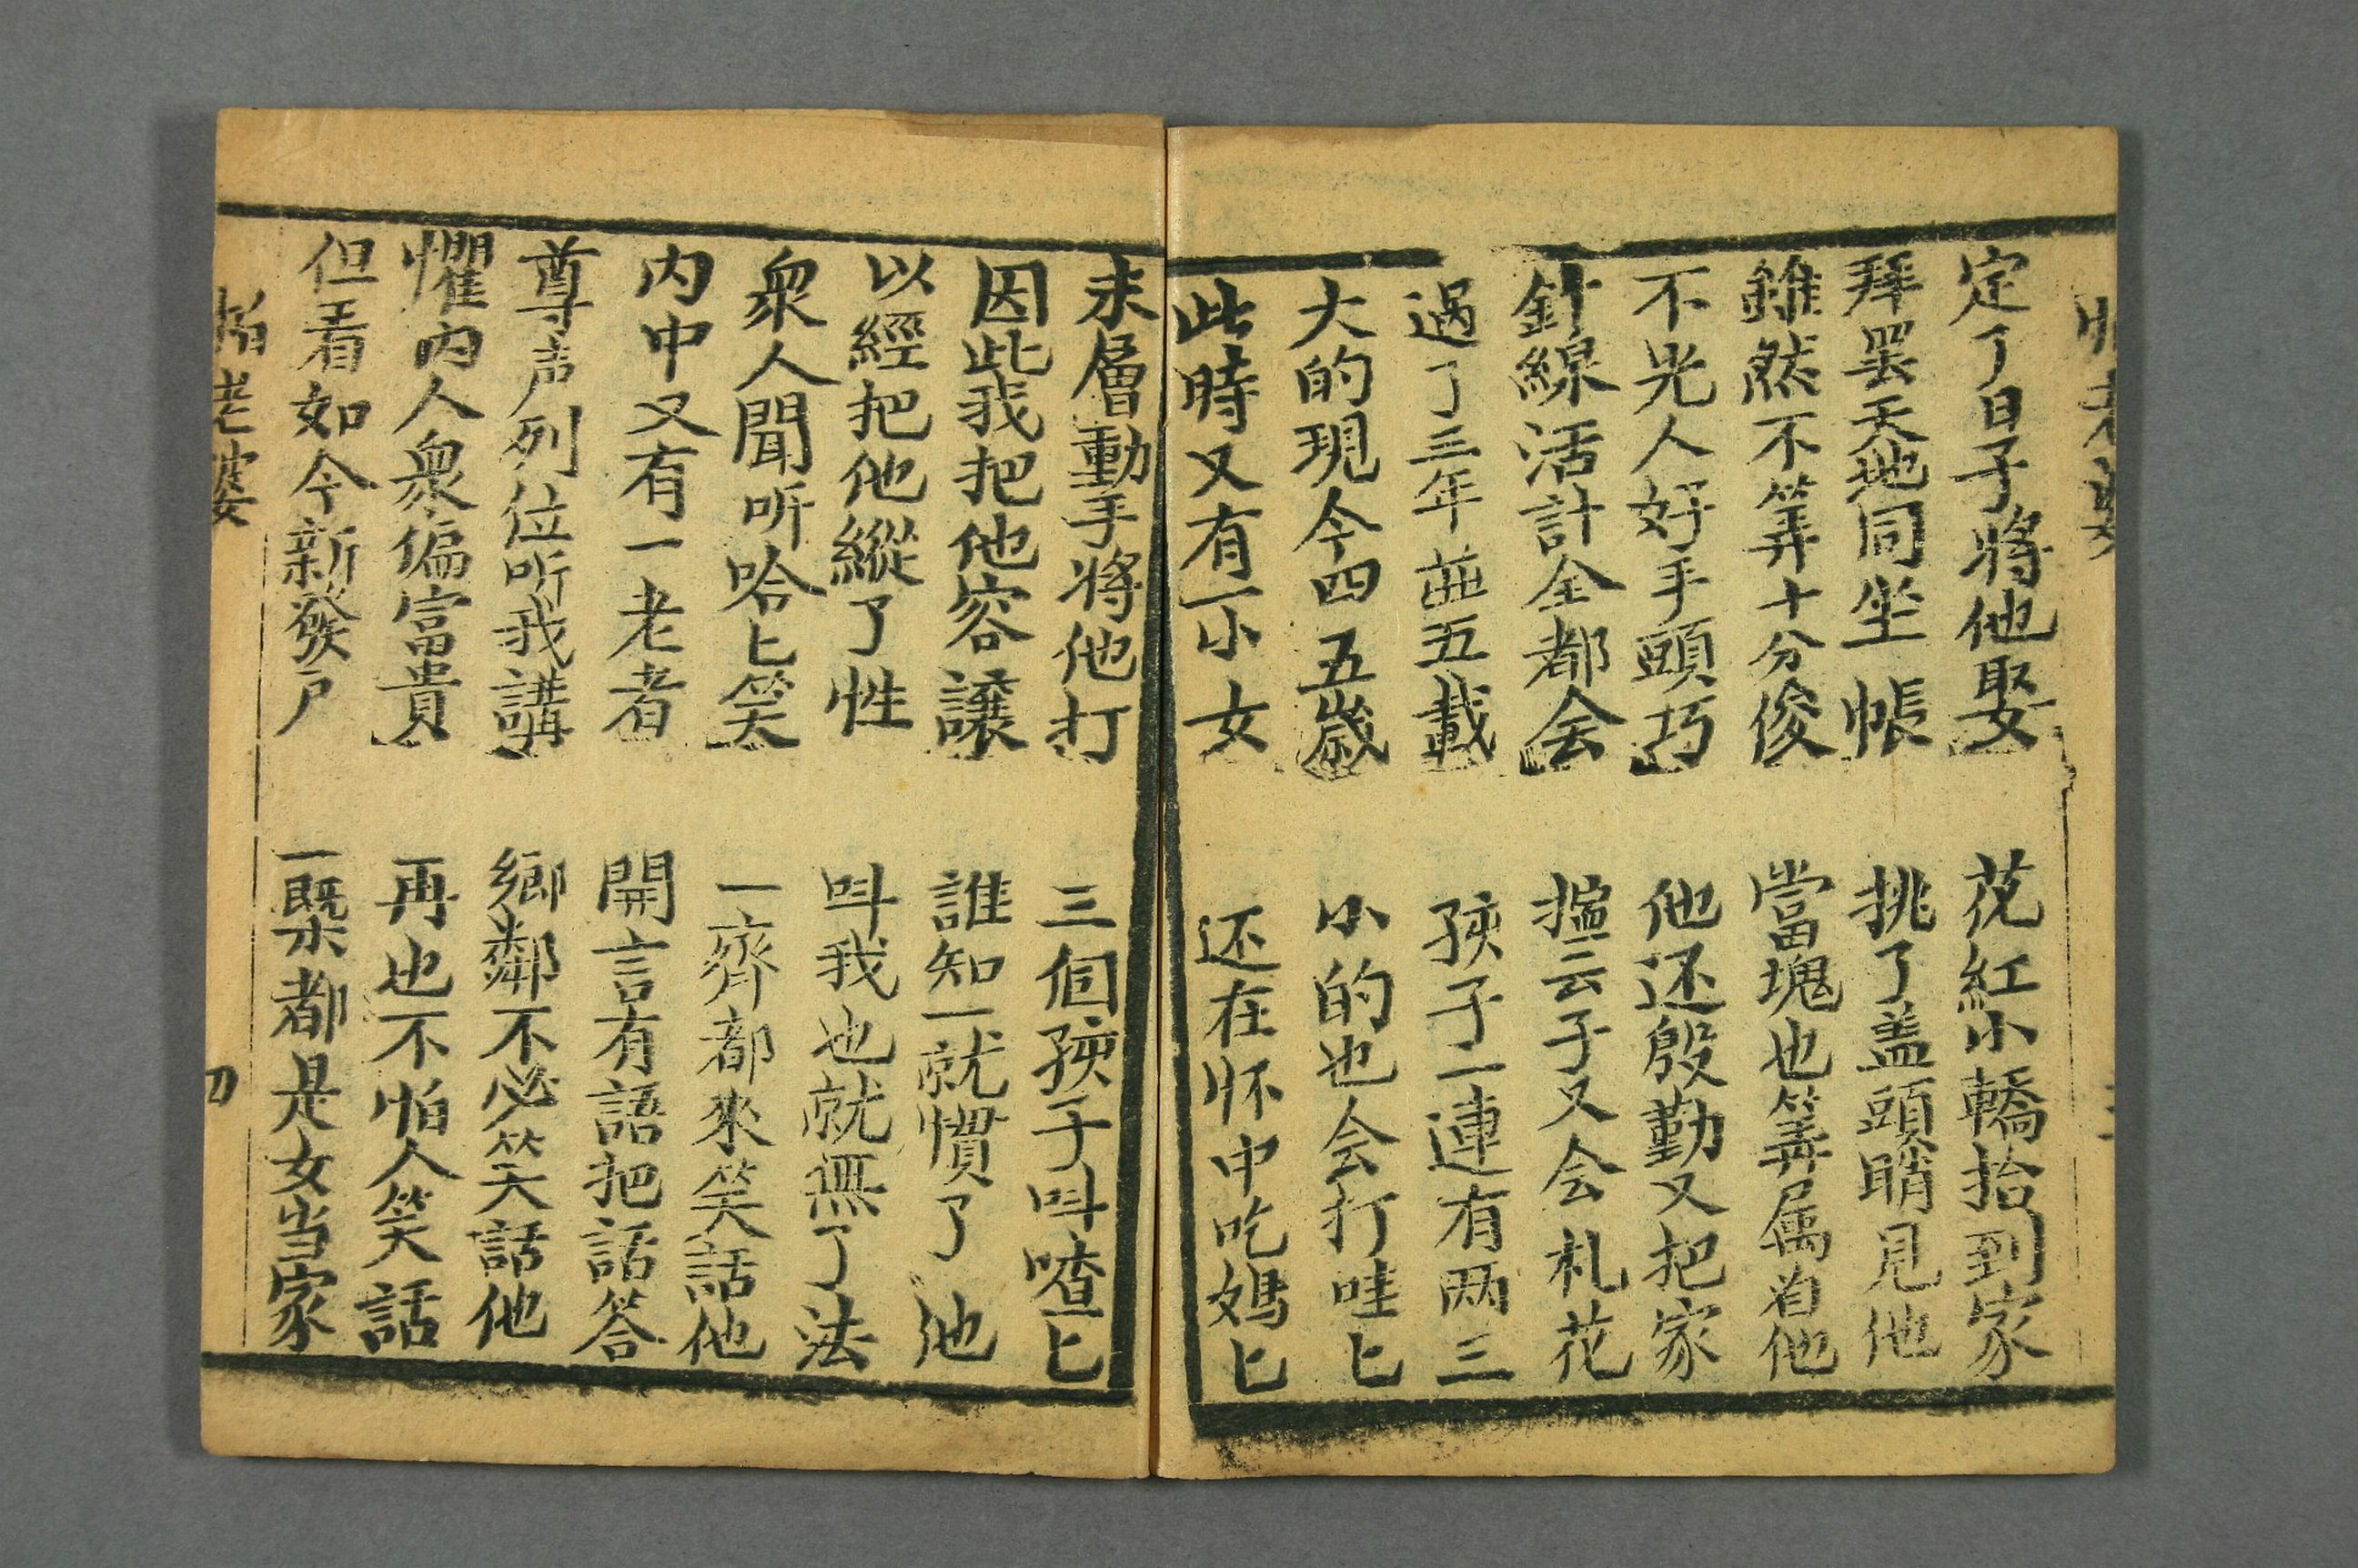 定了日子將他娶　花紅小轎抬到家
拜罢天地同坐帳　挑了盖頭睄見他
雖然不筭十分俊　當塊也筭属着他
不光人好手頭巧　他还殷勤又把家
針線活計全都会　揎云子又会札花
過了三年並五載　孩子二連有两三
大的現今四五歳　小的也会打哇匕
此時又有一小女　还在怀中吃媽匕
未層動手將他打　三個孩子呌喳匕
因此我把他容讓　誰知一就慣了他
以經把他縱了性　呌我也就無了法
衆人聞听哈匕笑　一齊都來笑話他
内中又有一老者　開言有語把話答
尊声列位听我講　鄉鄰不必笑話他
懼内人衆偏富貴　再也不怕人笑話
但看如今新發戸　一槩都是女当家
怕老婆